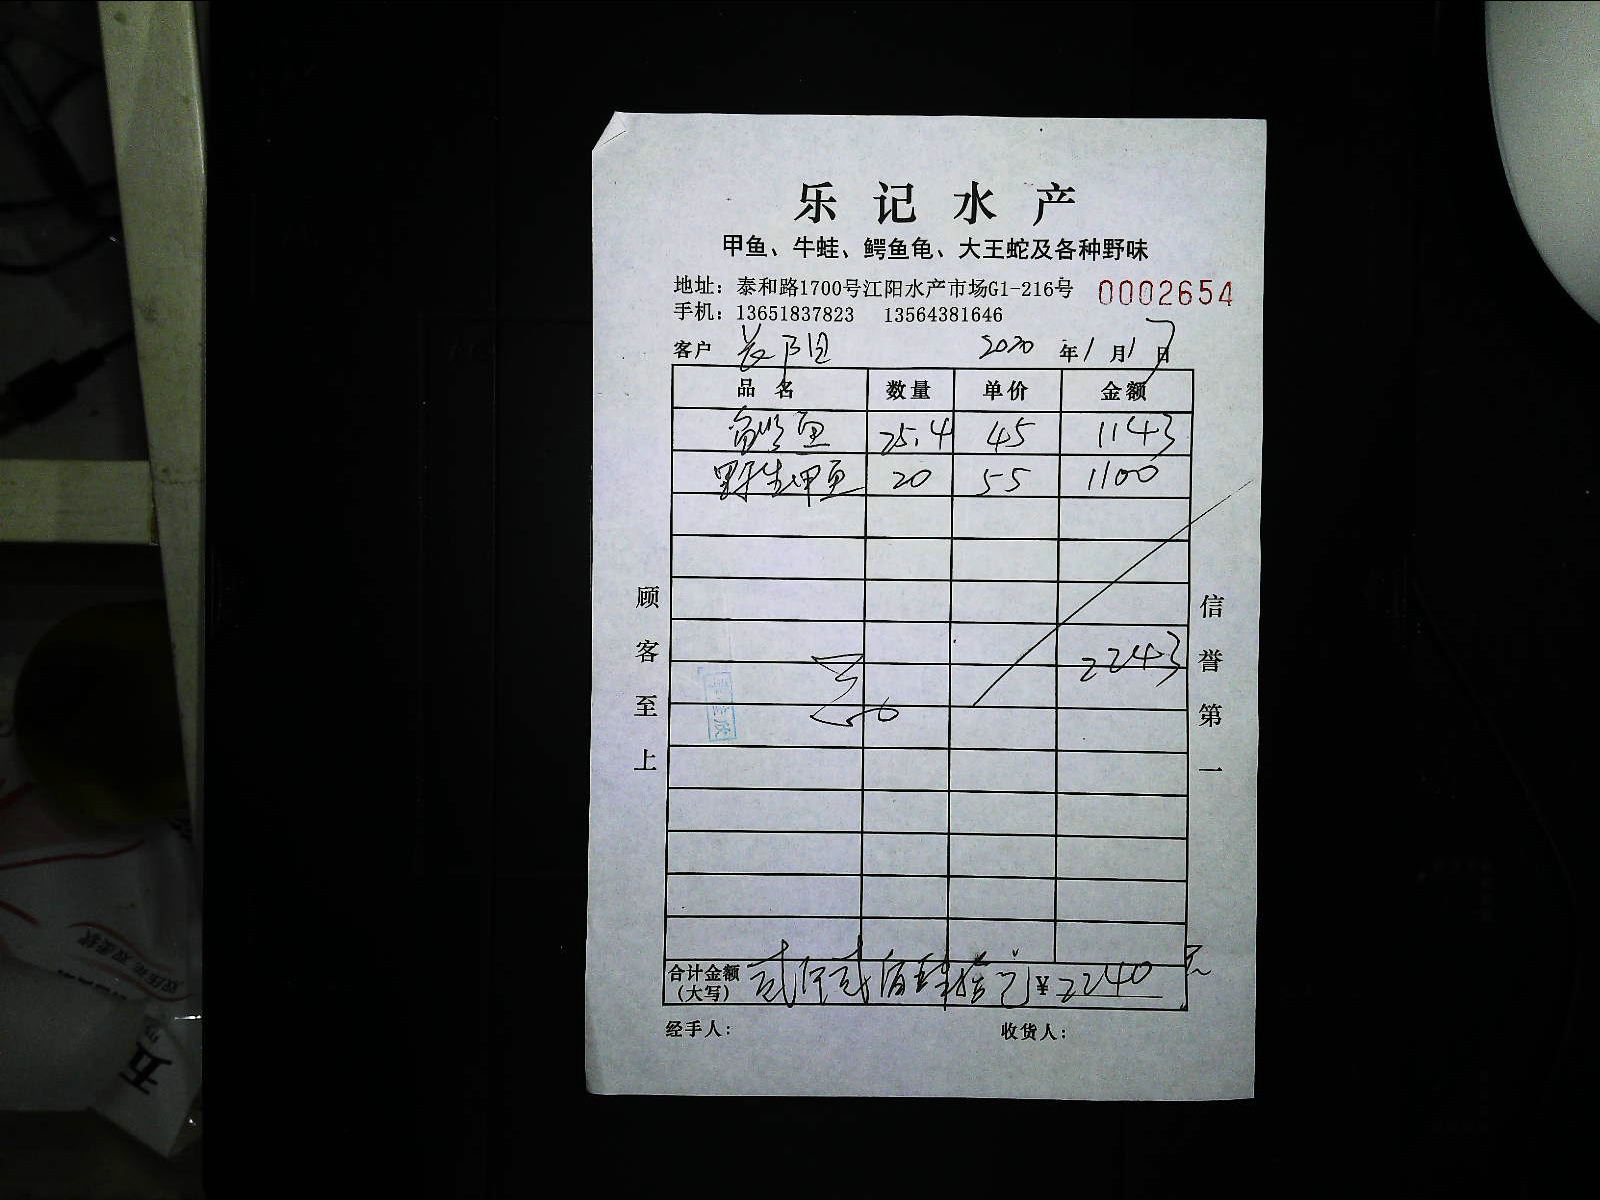 乐记水产
甲鱼、牛蛙、鳄鱼龟、大王蛇及各种野味
地址：泰和路1700号江阳水产市场G1-216号 0002654
手机：13651837823 13564381646
客户 2020 年1月1日
品名 数量 单价 金额
鱼 25.4 45 1143
野生甲鱼 20 55 1100
2243
顾客至上
信誉第一
合计金额（大写） 贰仟贰佰肆拾元 ¥2240元
经手人： 收货人：
五